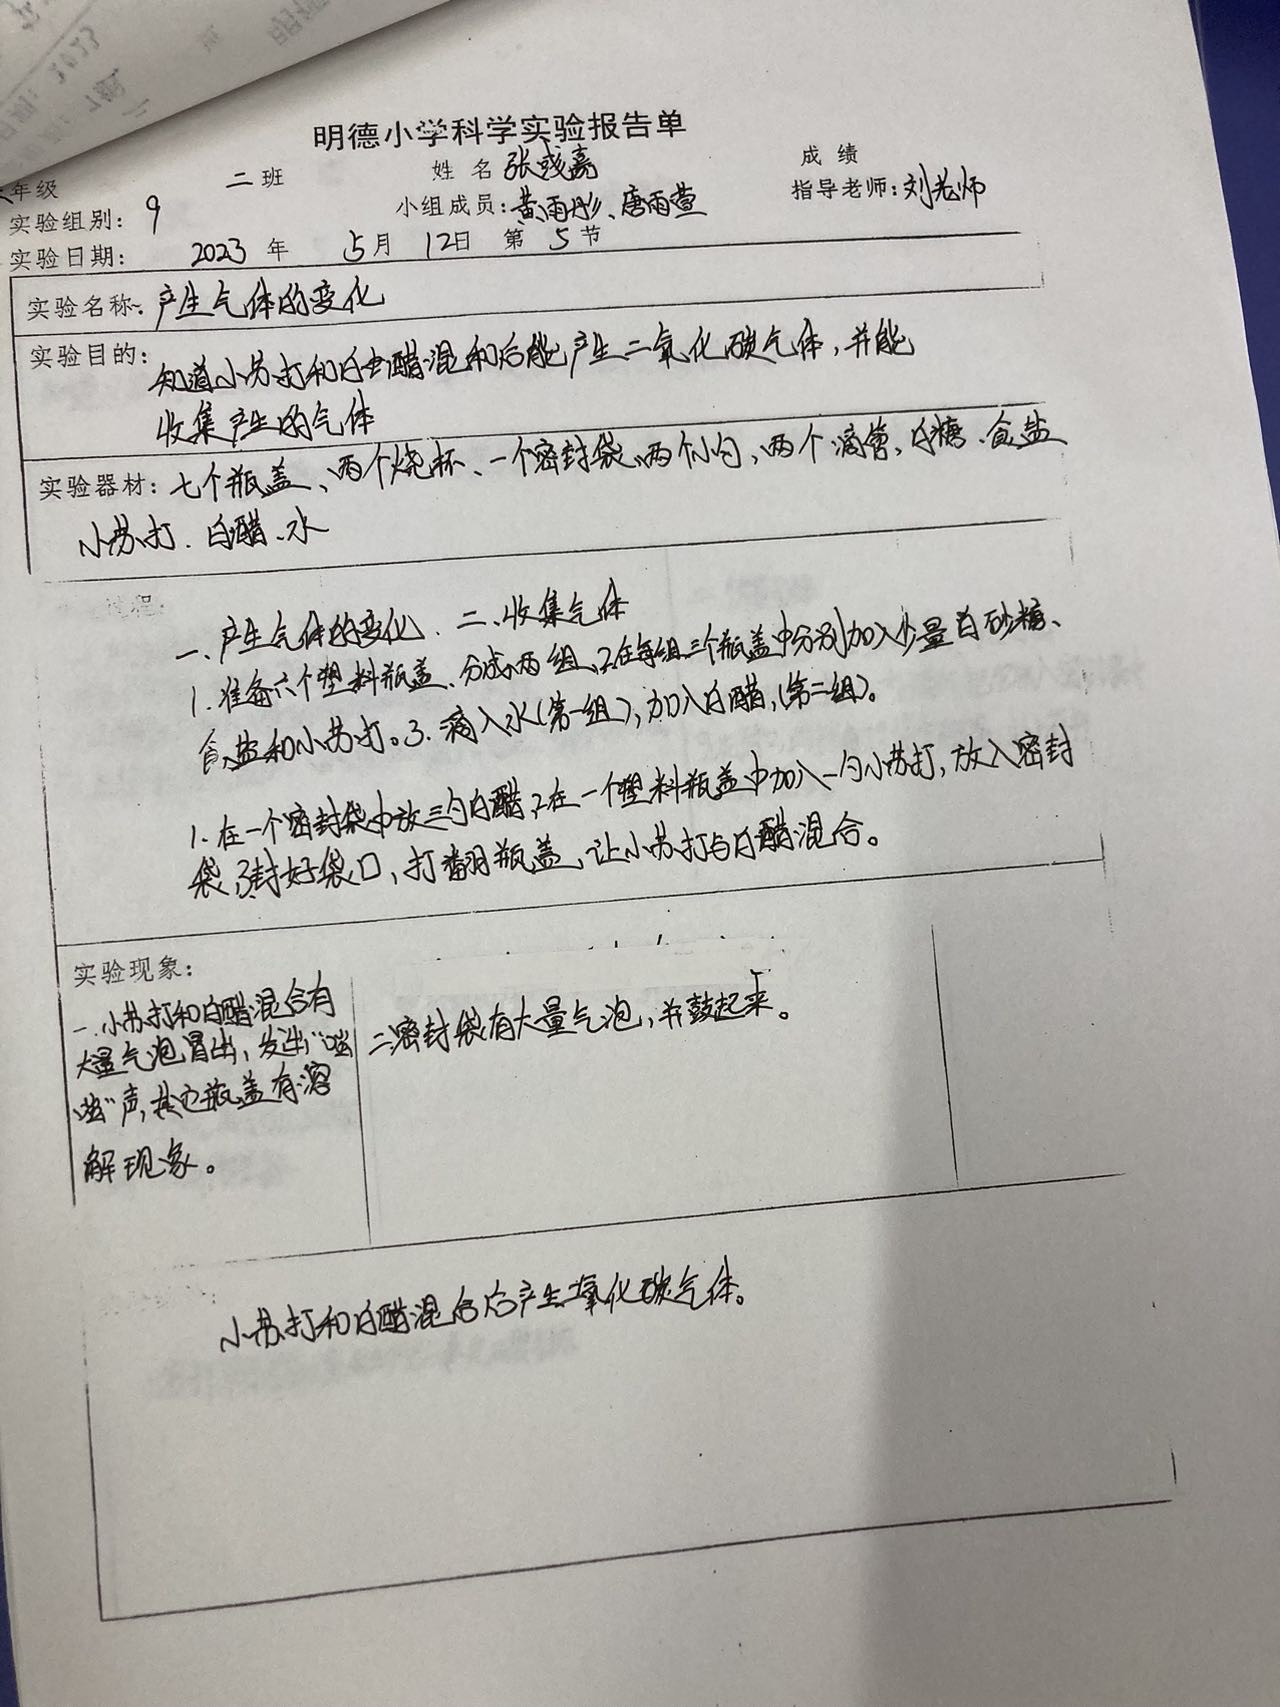 明德小学科学实验报告单
年级 二班 姓名 张彧嘉 成绩
实验组别: 9 小组成员: 黄雨彤、唐雨萱 指导老师: 刘老师
实验日期: 2023年 5月 12日 第 5 节
实验名称: 产生气体的变化
实验目的: 知道小苏打和白醋混和后能产生二氧化碳气体,并能
收集产生的气体
实验器材: 七个瓶盖、两个烧杯、一个密封袋、两个小勺、两个滴管、白糖、食盐
小苏打、白醋、水
过程:
一、产生气体的变化、二、收集气体
1.准备六个塑料瓶盖、分成两组、2.在每组三个瓶盖中分别加入少量白砂糖、
食盐和小苏打。3.滴入水(第一组),加入白醋,(第二组)。
1.在一个密封袋中放三勺白醋,2.在一个塑料瓶盖中加入一勺小苏打,放入密封
袋,3.封好袋口,打翻瓶盖,让小苏打与白醋混合。
实验现象:
一.小苏打和白醋混合有
大量气泡冒出,发出“嗞
嗞”声,其它瓶盖有溶
解现象。
二密封袋有大量气泡,并鼓起来。
小苏打和白醋混合后产生二氧化碳气体。